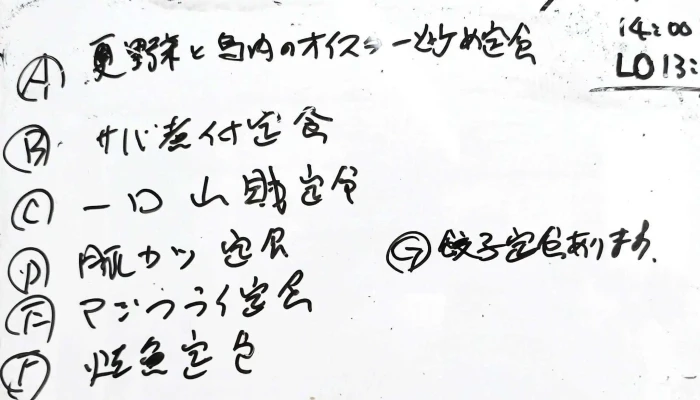 14:00
LO 13:
Ⓐ 夏野菜と鳥肉のオイスター炒め定食
Ⓑ サバ煮付定食
Ⓒ 一口山賊定食
Ⓓ 豚カツ定食
Ⓔ アジフライ定食
Ⓕ 焼魚定食
Ⓖ 餃子定食あります.